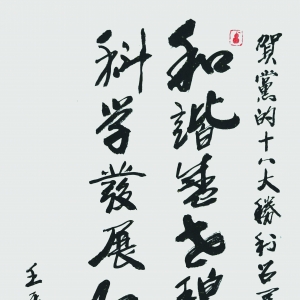 賀黨的十八大勝利召
和諧盛世
科学發展
王